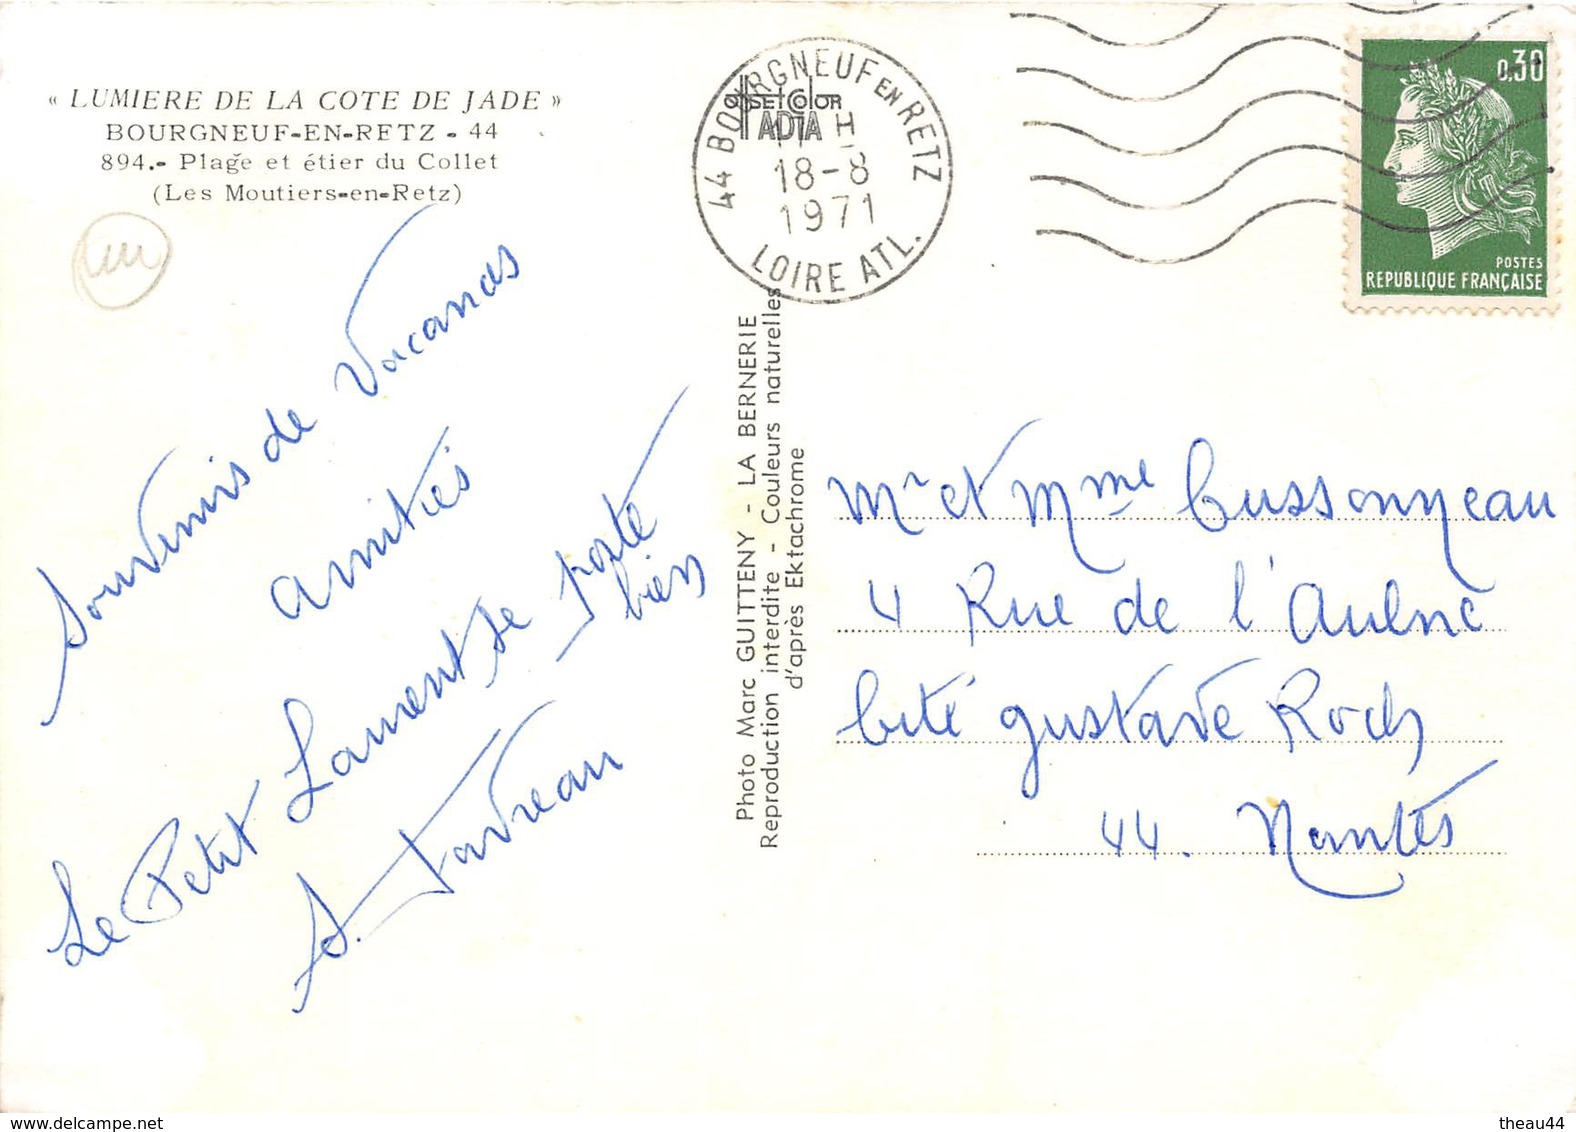 « LUMIERE DE LA COTE DE JADE »
BOURGNEUF-EN-RETZ - 44
894.- Plage et étier du Collet
(Les Moutiers-en-Retz)
Souvenirs de Vacances
amitiés
Le Petit Laurent se porte
bien
Photo Marc GUITTENY - LA BERNERIE
Reproduction interdite - Couleurs naturelles
d'après Ektachrome
OFFSET COLOR
ADIA
44 BOURGNEUF EN RETZ
H
18-8
1971
LOIRE ATL.
0.30
POSTES
REPUBLIQUE FRANÇAISE
Mr et Mme Cussonneau
4 Rue de l'Aulne
Cité Gustave Roch
44. Nantes
www.delcampe.net
theau44